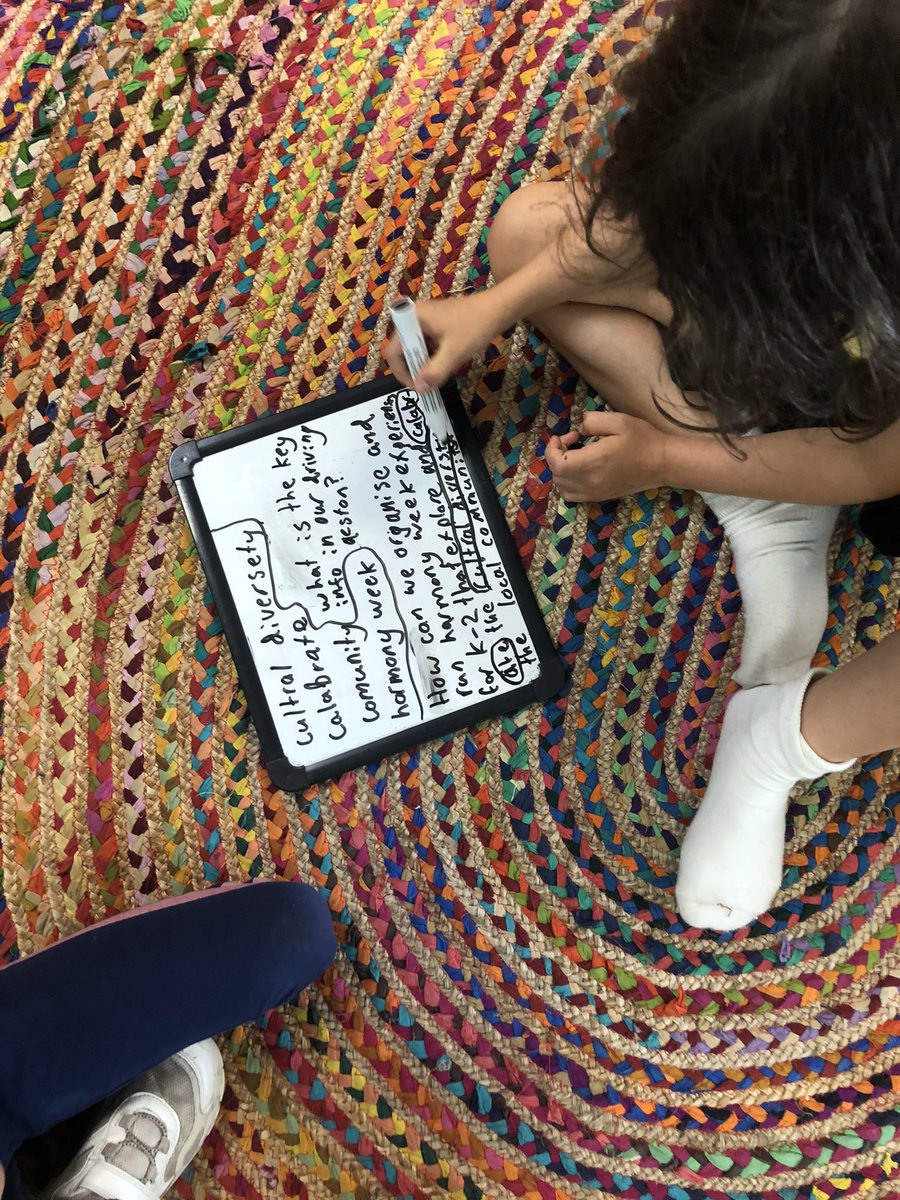 cultral diversety
calabrate what is the key
comunity info in our driving
harmony week qeston?
How can we organise and
run harmony week experiences
for k-2 that explore and calabr
ate the cultral diverset
the local